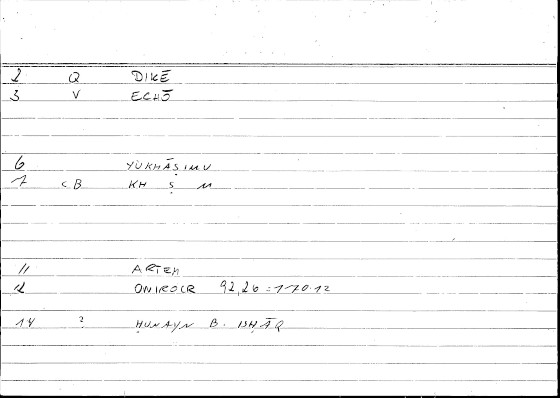 2 Q DIKĒ
3 V ECHŌ
6 YUKHĀṢIMU
7 CB KH Ṣ M
11 ARTEM
12 ONIROCR 92,26 = 170.12
14 ? ḤUNAYN B. ISḤĀQ